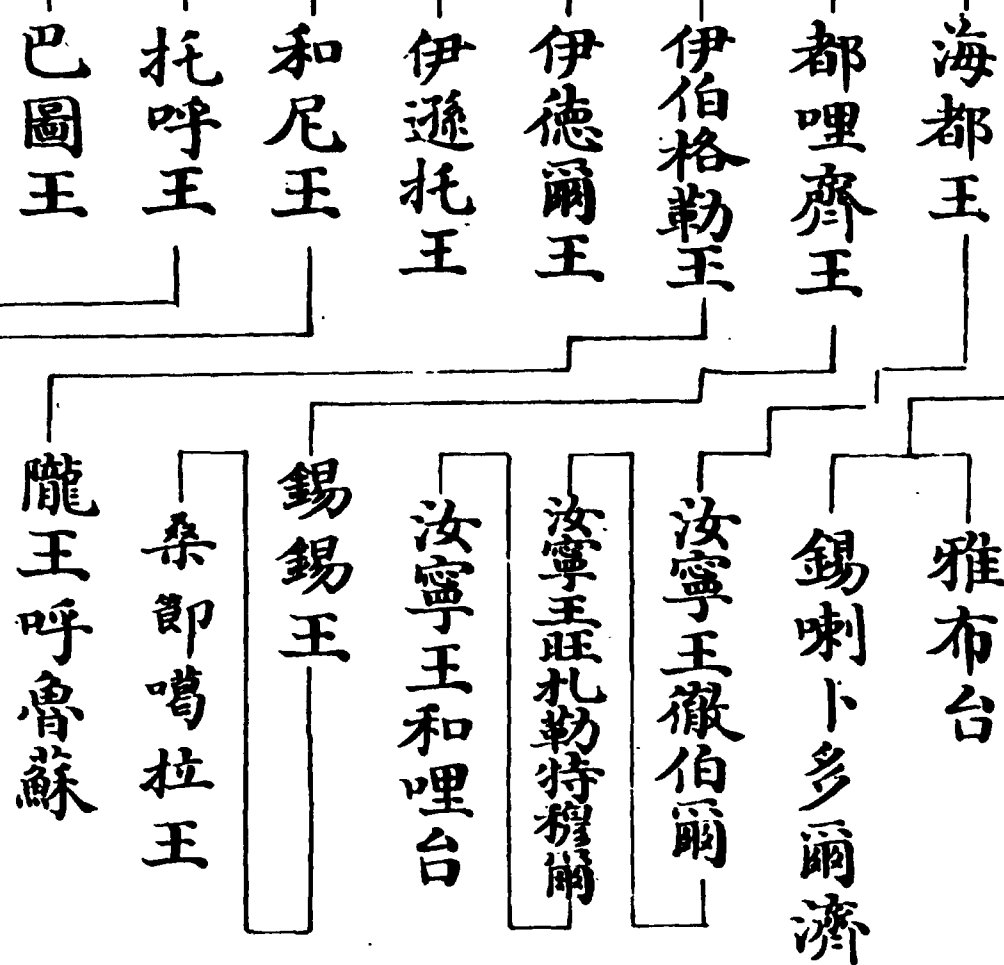 海都王
都哩齊王
伊伯格勒王
伊德爾王
伊遜托王
和尼王
托呼王
巴圖王
雅布台
錫喇卜多爾濟
汝寧王徹伯爾
汝寧王旺札勒特穆爾
汝寧王和哩台
錫錫王
桑節噶拉王
隴王呼魯蘇